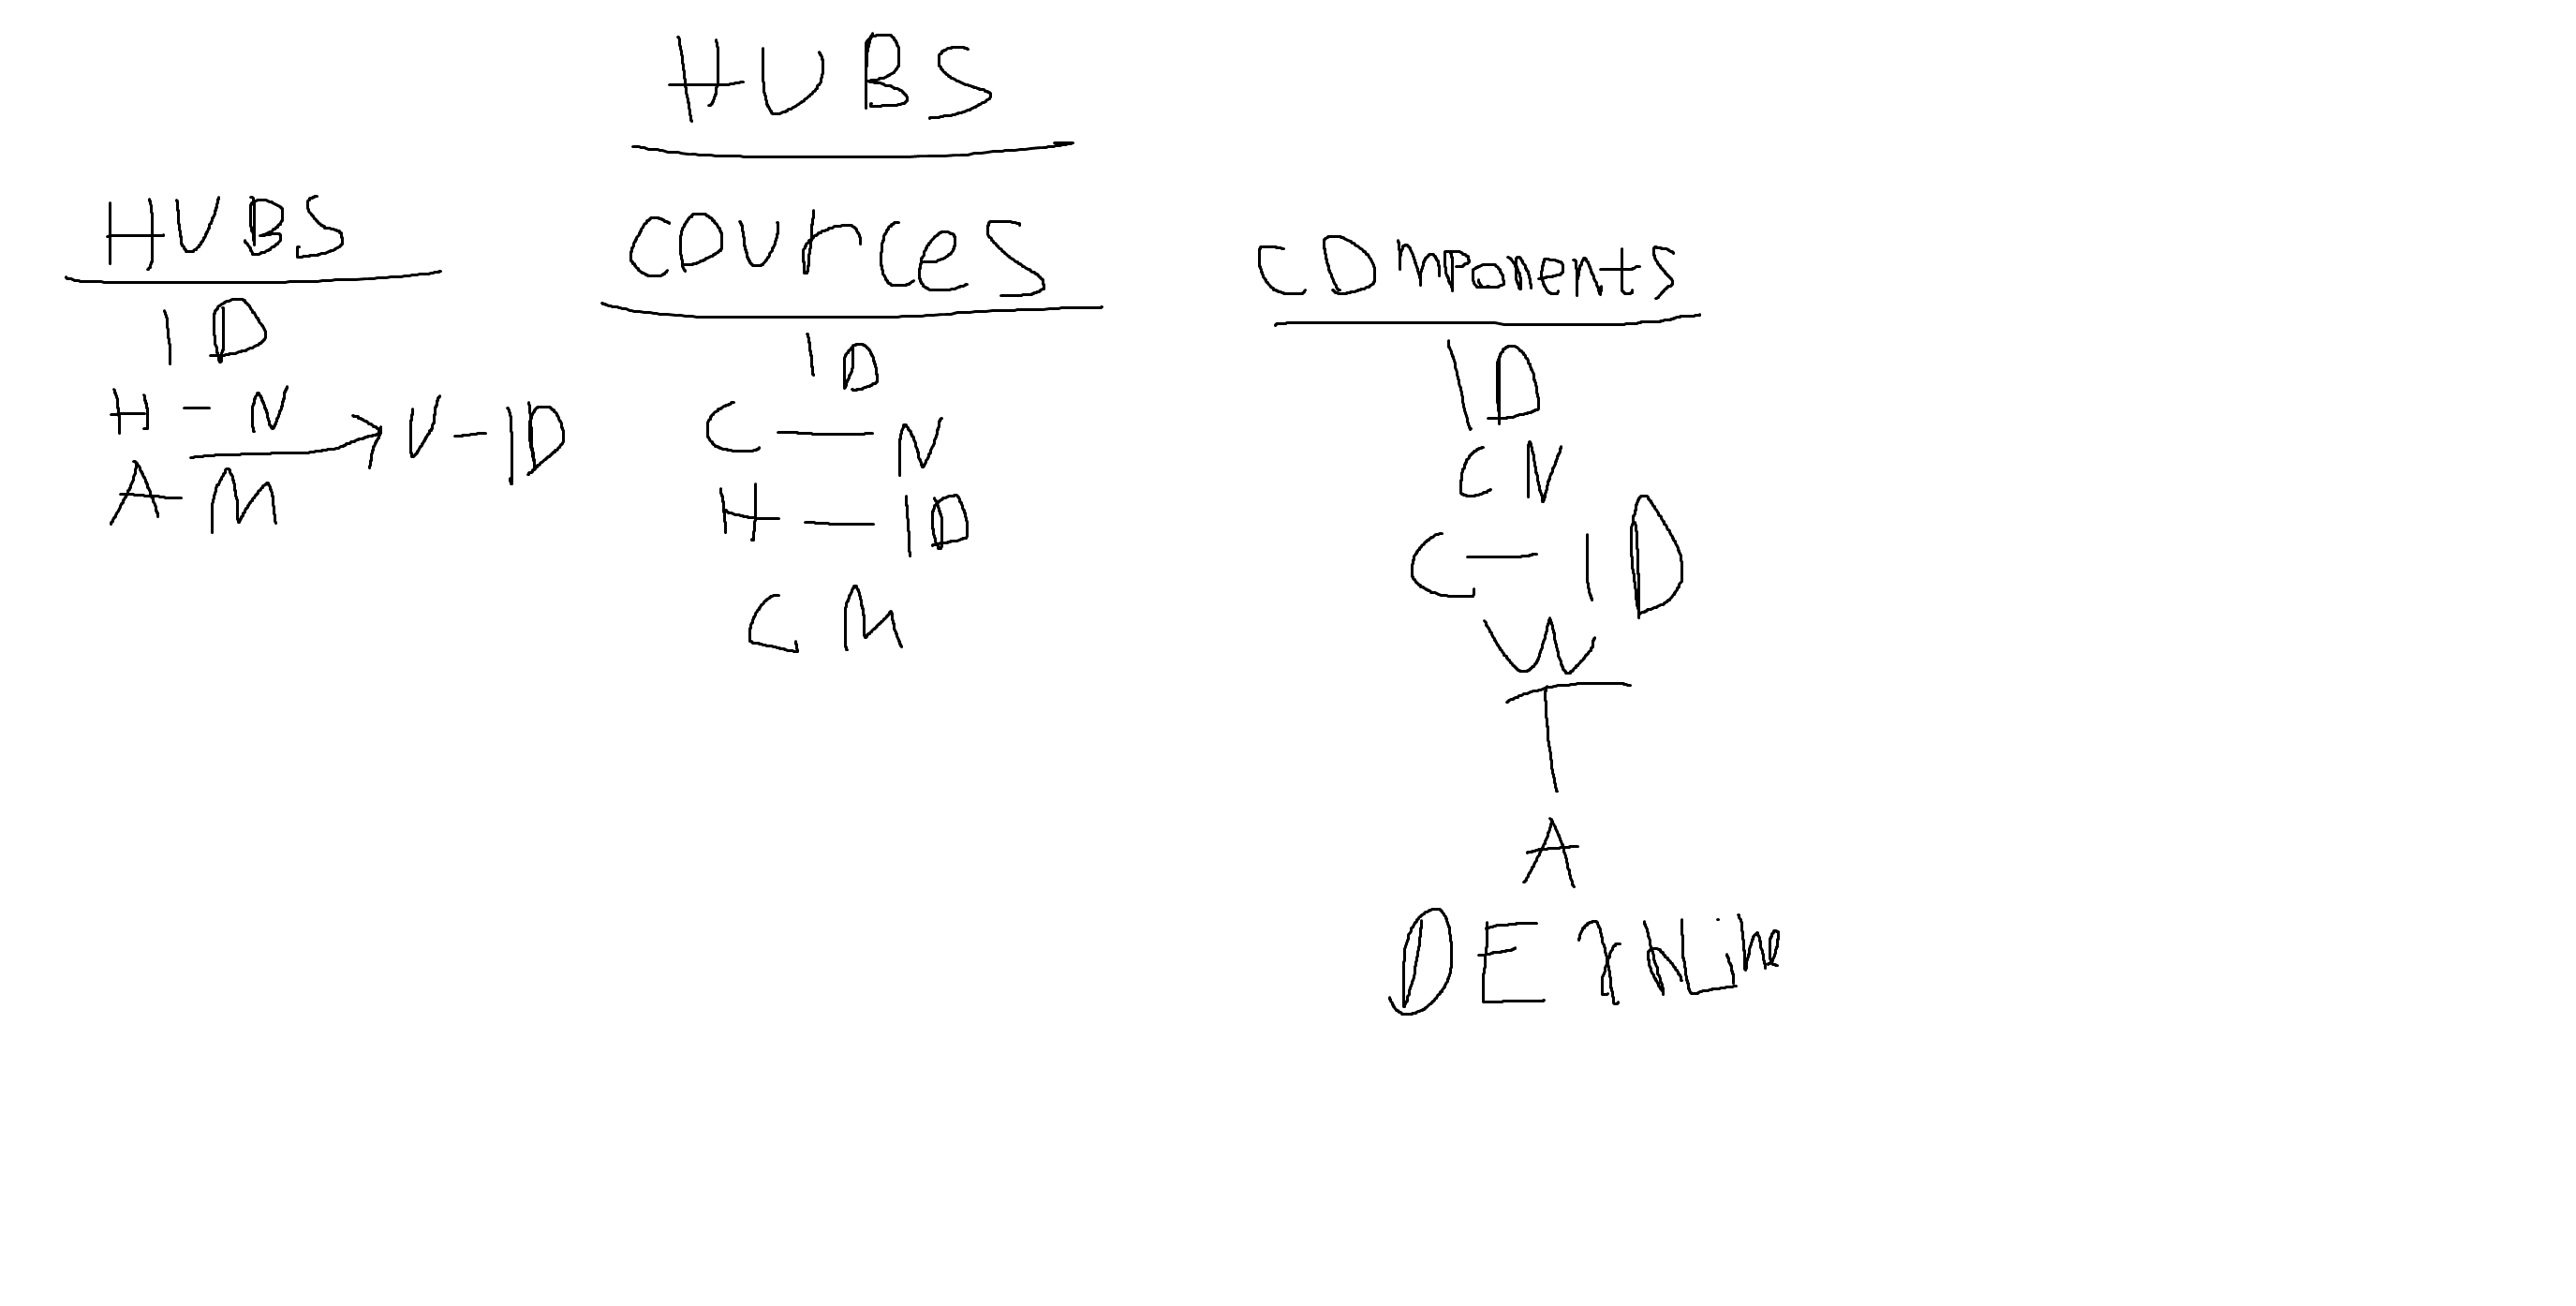 HUBS
HUBS
ID
H - N
→ U - ID
A - M
Cources
ID
C - N
H - ID
C M
Components
ID
C N
C - ID
W
T
A